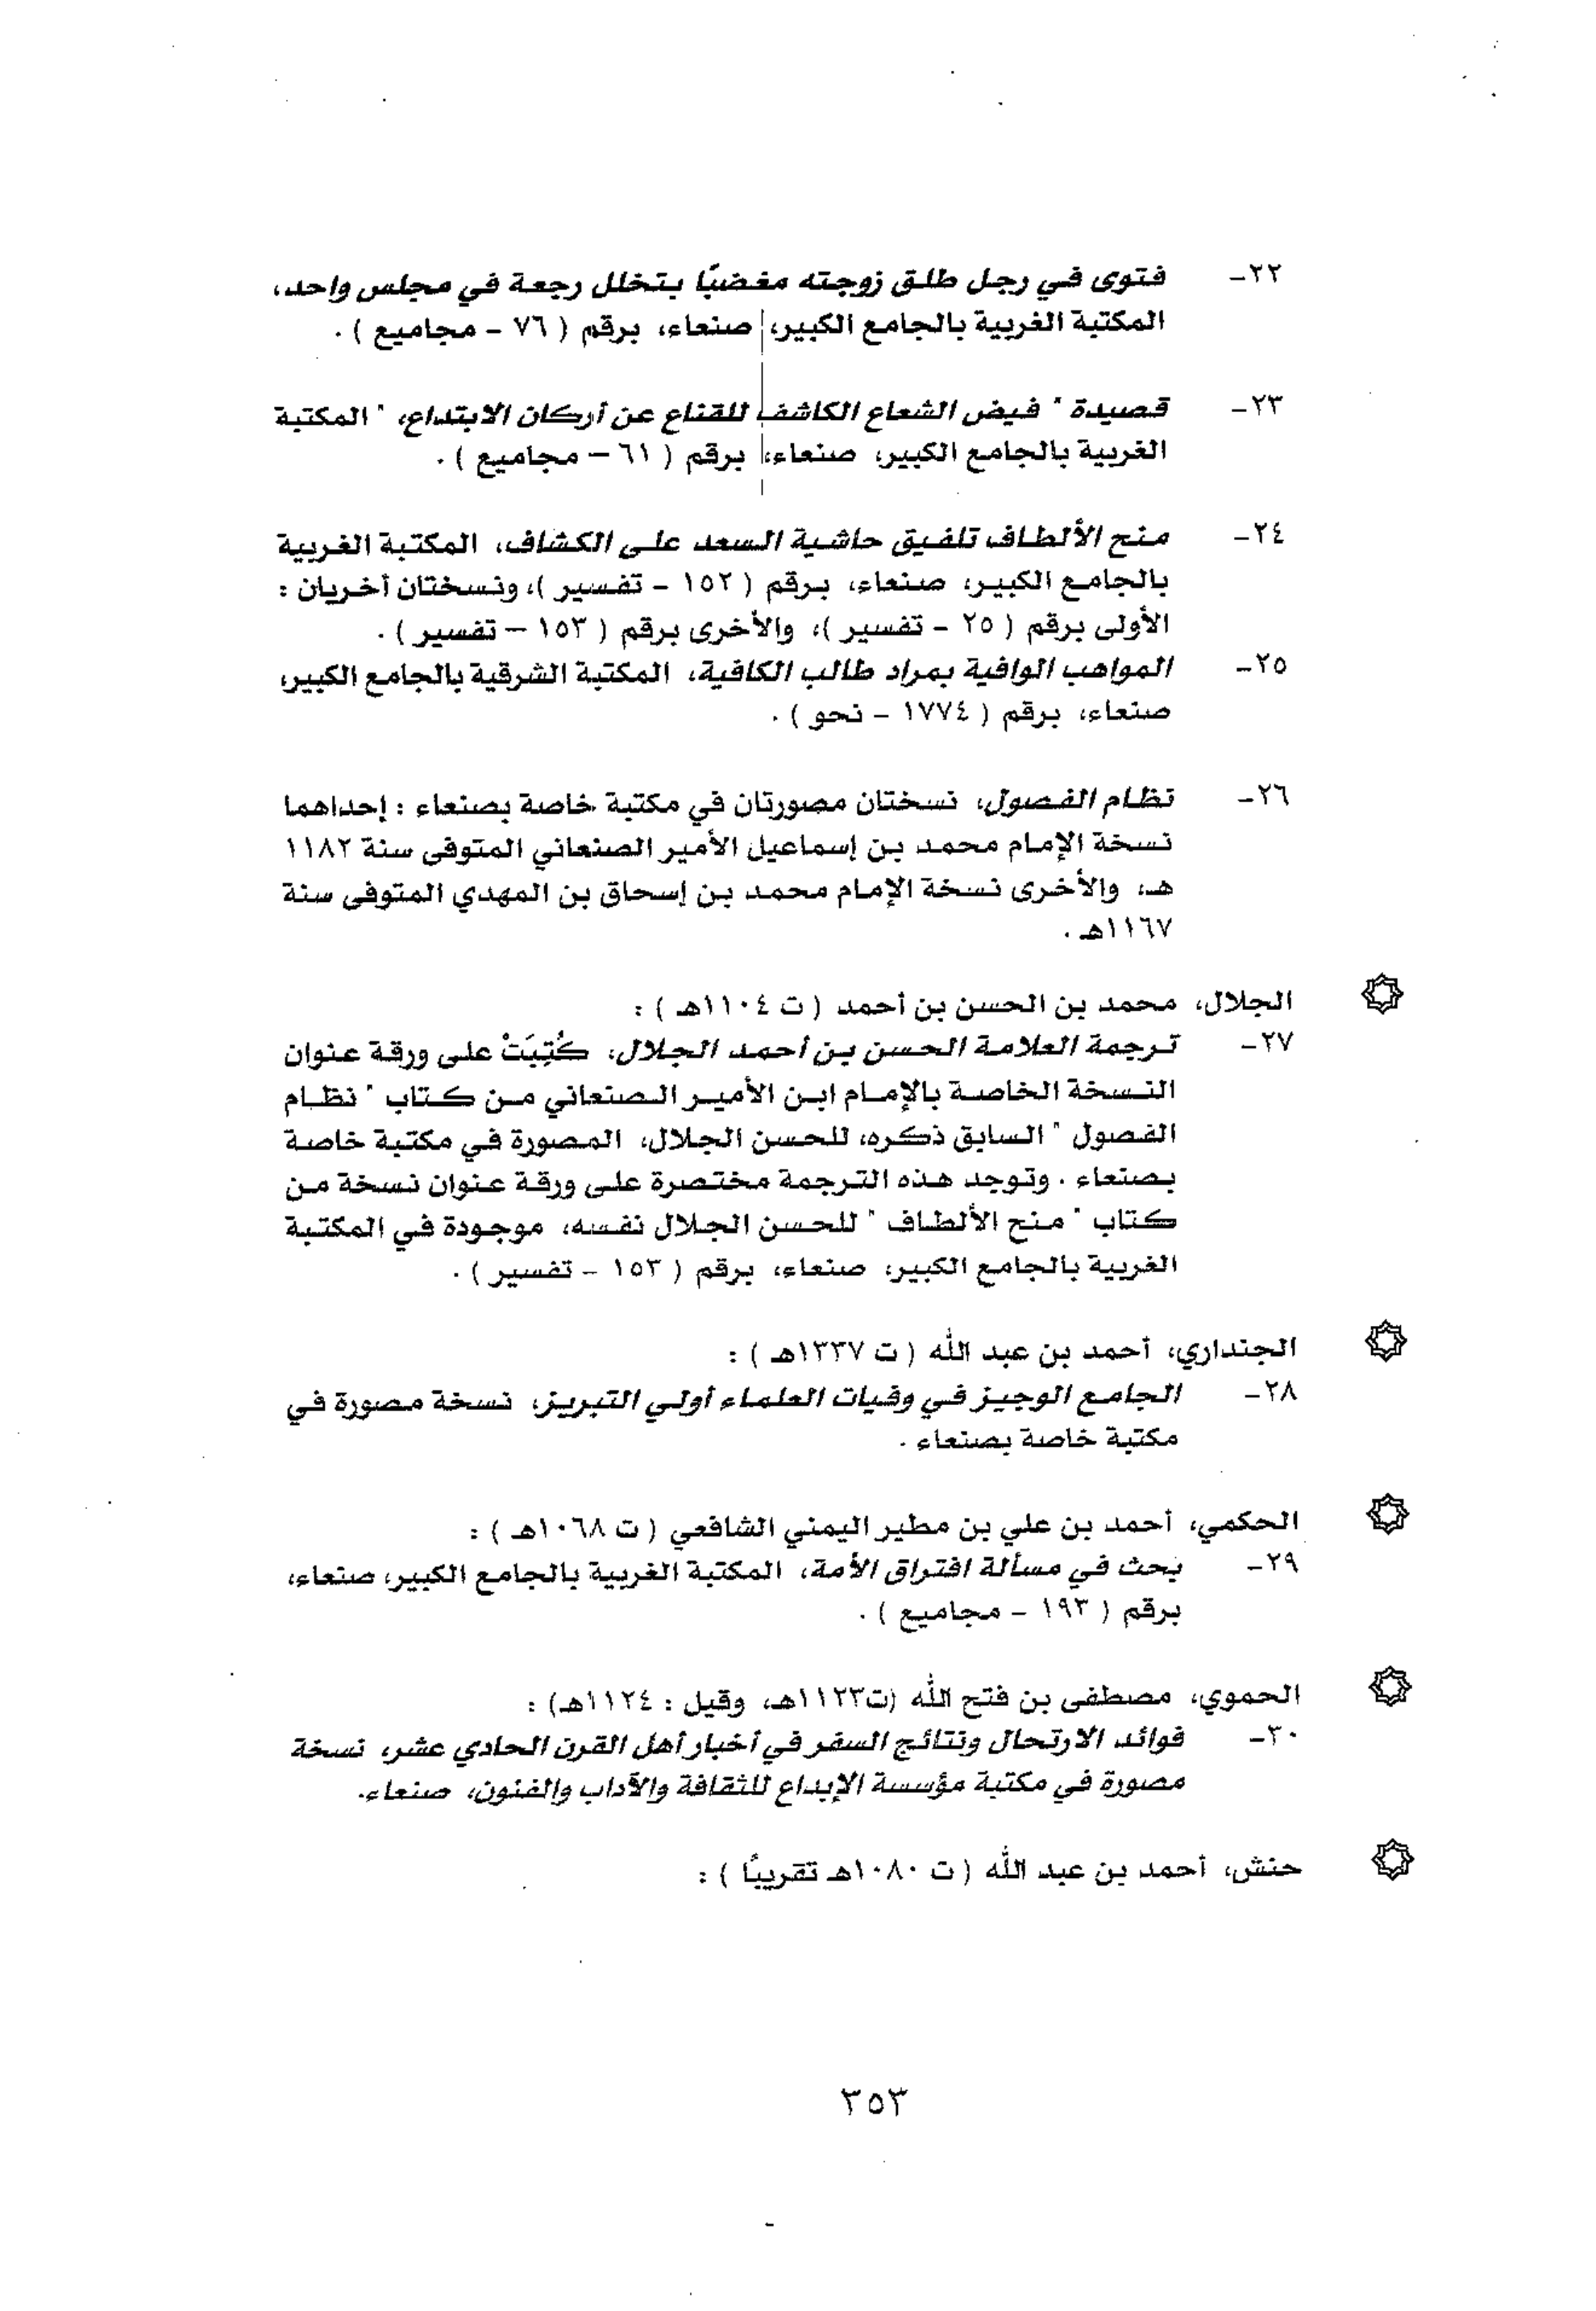 ٢٢- فتوى في رجل طلق زوجته مغضبًا بتخلل رجعة في مجلس واحد،
المكتبة الغربية بالجامع الكبير، صنعاء، برقم ( ٧٦ - مجاميع ) .
٢٣- قصيدة " فيض الشعاع الكاشف للقناع عن أركان الابتداع، " المكتبة
الغربية بالجامع الكبير، صنعاء، برقم ( ٦١ – مجاميع ) .
٢٤- منح الألطاف تلفيق حاشية السعد على الكشاف، المكتبة الغربية
بالجامع الكبير، صنعاء، برقم ( ١٥٢ - تفسير )، ونسختان أخريان :
الأولى برقم ( ٢٥ - تفسير )، والأخرى برقم ( ١٥٣ – تفسير ) .
٢٥- المواهب الوافية بمراد طالب الكافية، المكتبة الشرقية بالجامع الكبير،
صنعاء، برقم ( ١٧٧٤ - نحو ) .
٢٦- نظام الفصول، نسختان مصورتان في مكتبة خاصة بصنعاء : إحداهما
نسخة الإمام محمد بن إسماعيل الأمير الصنعاني المتوفى سنة ١١٨٢
هـ، والأخرى نسخة الإمام محمد بن إسحاق بن المهدي المتوفى سنة
١١٦٧هـ .
الجلال، محمد بن الحسن بن أحمد ( ت ١١٠٤هـ ) :
٢٧- ترجمة العلامة الحسن بن أحمد الجلال، كُتِبَتْ على ورقة عنوان
النسخة الخاصة بالإمام ابن الأمير الصنعاني من كتاب " نظام
الفصول " السابق ذكره، للحسن الجلال، المصورة في مكتبة خاصة
بصنعاء . وتوجد هذه الترجمة مختصرة على ورقة عنوان نسخة من
كتاب " منح الألطاف " للحسن الجلال نفسه، موجودة في المكتبة
الغربية بالجامع الكبير، صنعاء، برقم ( ١٥٣ - تفسير ) .
الجنداري، أحمد بن عبد الله ( ت ١٣٣٧هـ ) :
٢٨- الجامع الوجيز في وفيات العلماء أولي التبريز، نسخة مصورة في
مكتبة خاصة بصنعاء .
الحكمي، أحمد بن علي بن مطير اليمني الشافعي ( ت ١٠٦٨هـ ) :
٢٩- بحث في مسألة افتراق الأمة، المكتبة الغربية بالجامع الكبير، صنعاء،
برقم ( ١٩٣ - مجاميع ) .
الحموي، مصطفى بن فتح الله (ت١١٢٣هـ، وقيل : ١١٢٤هـ) :
٣٠- فوائد الارتحال ونتائج السفر في أخبار أهل القرن الحادي عشر، نسخة
مصورة في مكتبة مؤسسة الإبداع للثقافة والآداب والفنون، صنعاء.
حنش، أحمد بن عبد الله ( ت ١٠٨٠هـ تقريبًا ) :
٣٥٣